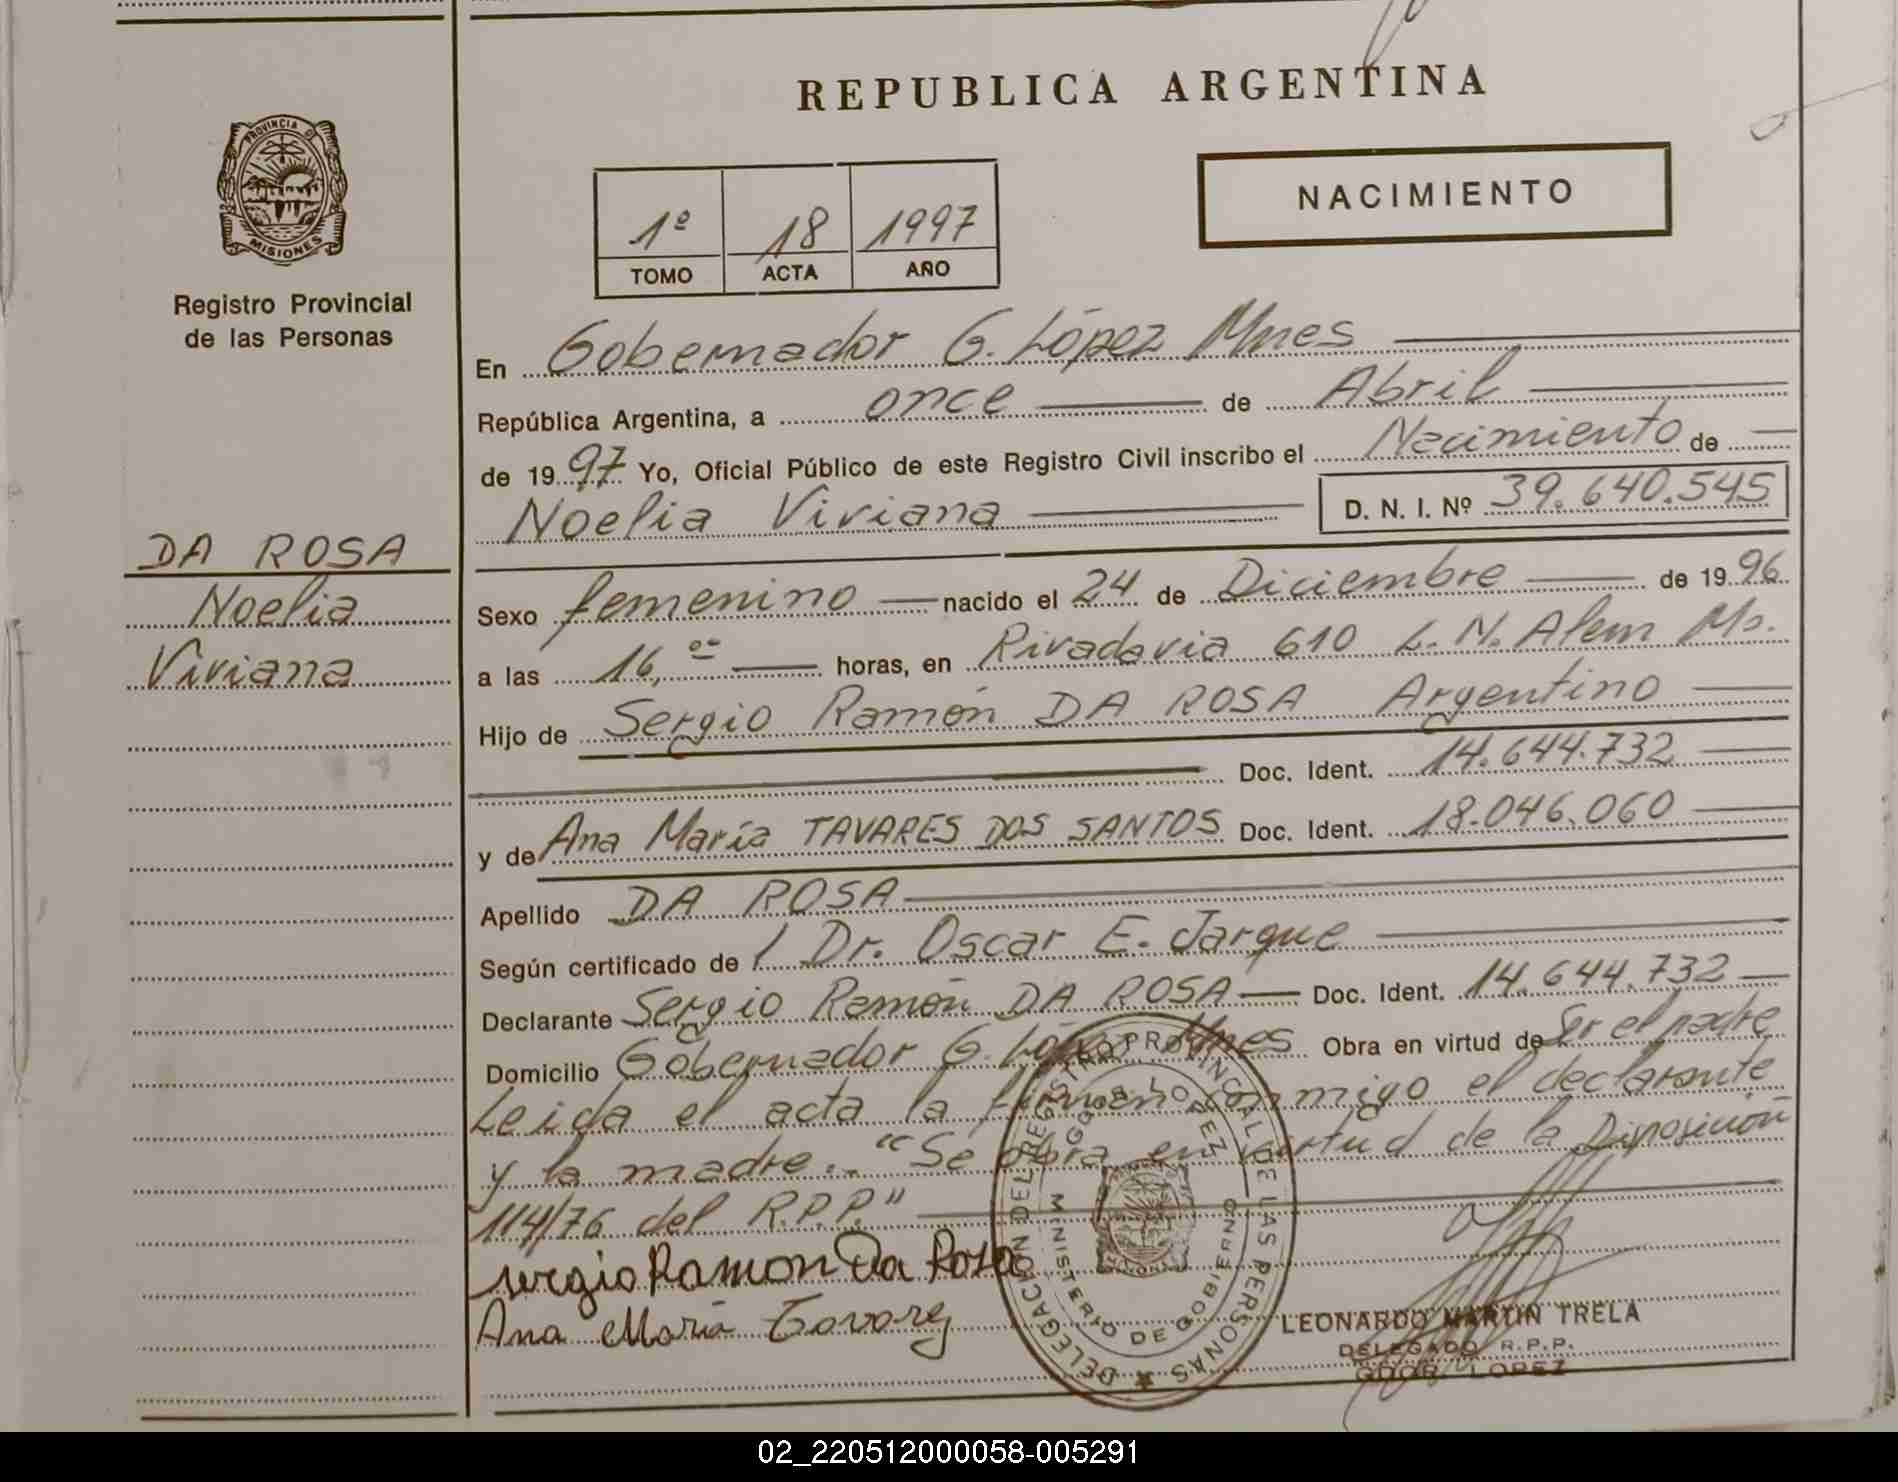 REPUBLICA ARGENTINA
PROVINCIA DE
MISIONES
Registro Provincial
de las Personas
1º 18 1997
TOMO ACTA AÑO
NACIMIENTO
DA ROSA
Noelia
Viviana
En Gobernador G. López Mnes
República Argentina, a once de Abril
de 1997 Yo, Oficial Público de este Registro Civil inscribo el Nacimiento de
Noelia Viviana D. N. I. Nº 39.640.545
Sexo femenino nacido el 24 de Diciembre de 1996
a las 16,00 horas, en Rivadavia 610 L. N. Alem Ms.
Hijo de Sergio Ramón DA ROSA Argentino
Doc. Ident. 14.644.732
y de Ana María TAVARES DOS SANTOS Doc. Ident. 18.046.060
Apellido DA ROSA
Según certificado de l Dr. Oscar E. Jarque
Declarante Sergio Ramón DA ROSA Doc. Ident. 14.644.732
Domicilio Gobernador G. López Mnes Obra en virtud de Ser el padre
Leida el acta la firman conmigo el declarante
y la madre.. "Se obra en virtud de la Disposición
114/76 del R.P.P."
sergio Ramon Da Rosa
Ana María Tavarez
DELEGACION DEL REGISTRO PROVINCIAL DE LAS PERSONAS
GOB. LOPEZ
MINISTERIO DE GOBIERNO
LEONARDO MARTIN TRELA
DELEGADO R.P.P.
GDOR. LOPEZ
02_220512000058-005291